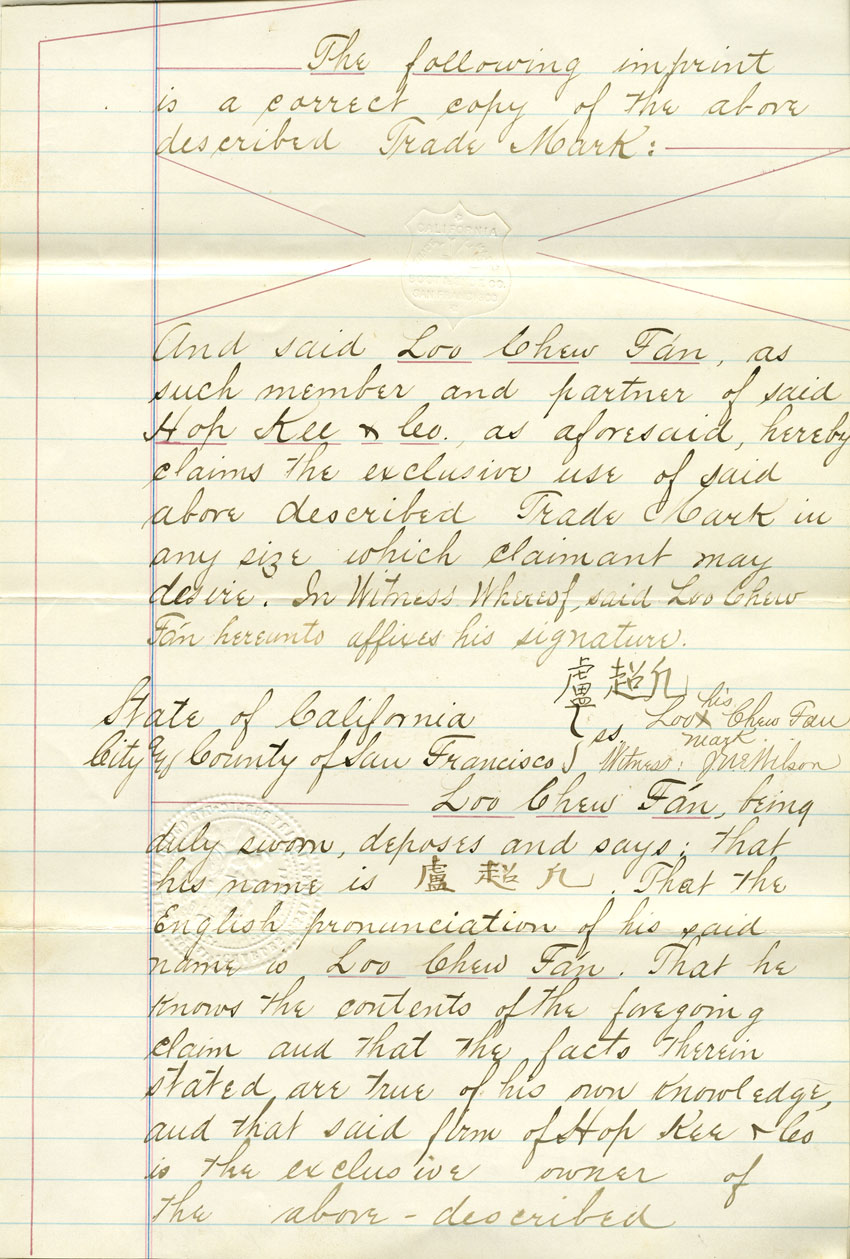 The following imprint
is a correct copy of the above
described Trade Mark:
CALIFORNIA
And said Loo Chew Fán, as
such member and partner of said
Hop Kee & Co., as aforesaid, hereby
claims the exclusive use of said
above described Trade Mark in
any size which claimant may
desire. In Witness Whereof, said Loo Chew
Fán hereunto affixes his signature.
盧超凡
his
Loo X Chew Fan
mark
State of California
City and County of San Francisco } ss. Witness: Wilson
Loo Chew Fán, being
duly sworn, deposes and says: that
his name is 盧超凡. That the
English pronunciation of his said
name is Loo Chew Fán. That he
knows the contents of the foregoing
claim and that the facts therein
stated are true of his own knowledge,
and that said firm of Hop Kee & Co
is the exclusive owner of
the above-described